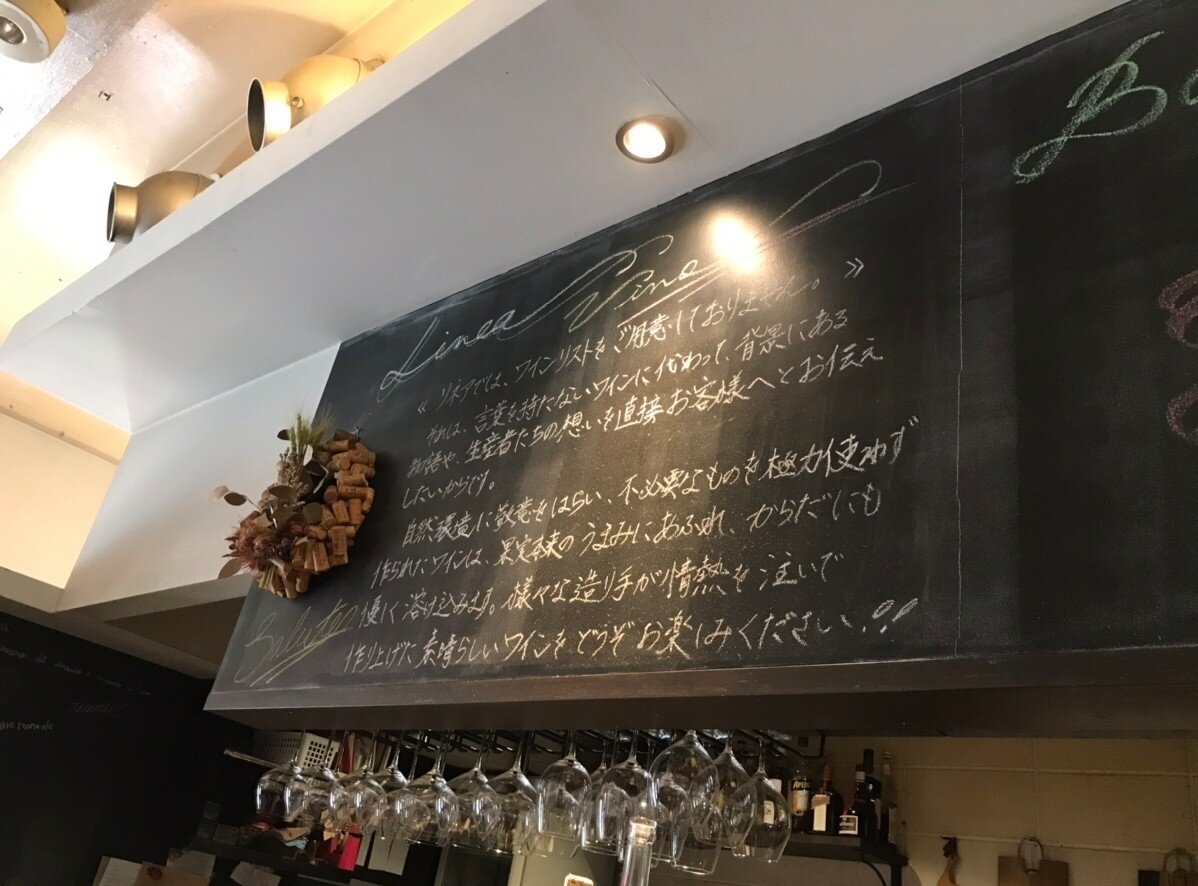 Linea Vino
《 リネアでは、ワインリストをご用意しておりません。 》
それは、言葉を持たないワインに代わって、背景にある
物語や、生産者たちの想いを直接お客様へとお伝え
したいからです。
自然環境に敬意をはらい、不必要なものを極力使わず
作られたワインは、果実本来のうまみにあふれ、からだにも
優しく溶け込みます。様々な造り手が情熱を注いで
作り上げた素晴らしいワインをどうぞお楽しみください!!
B